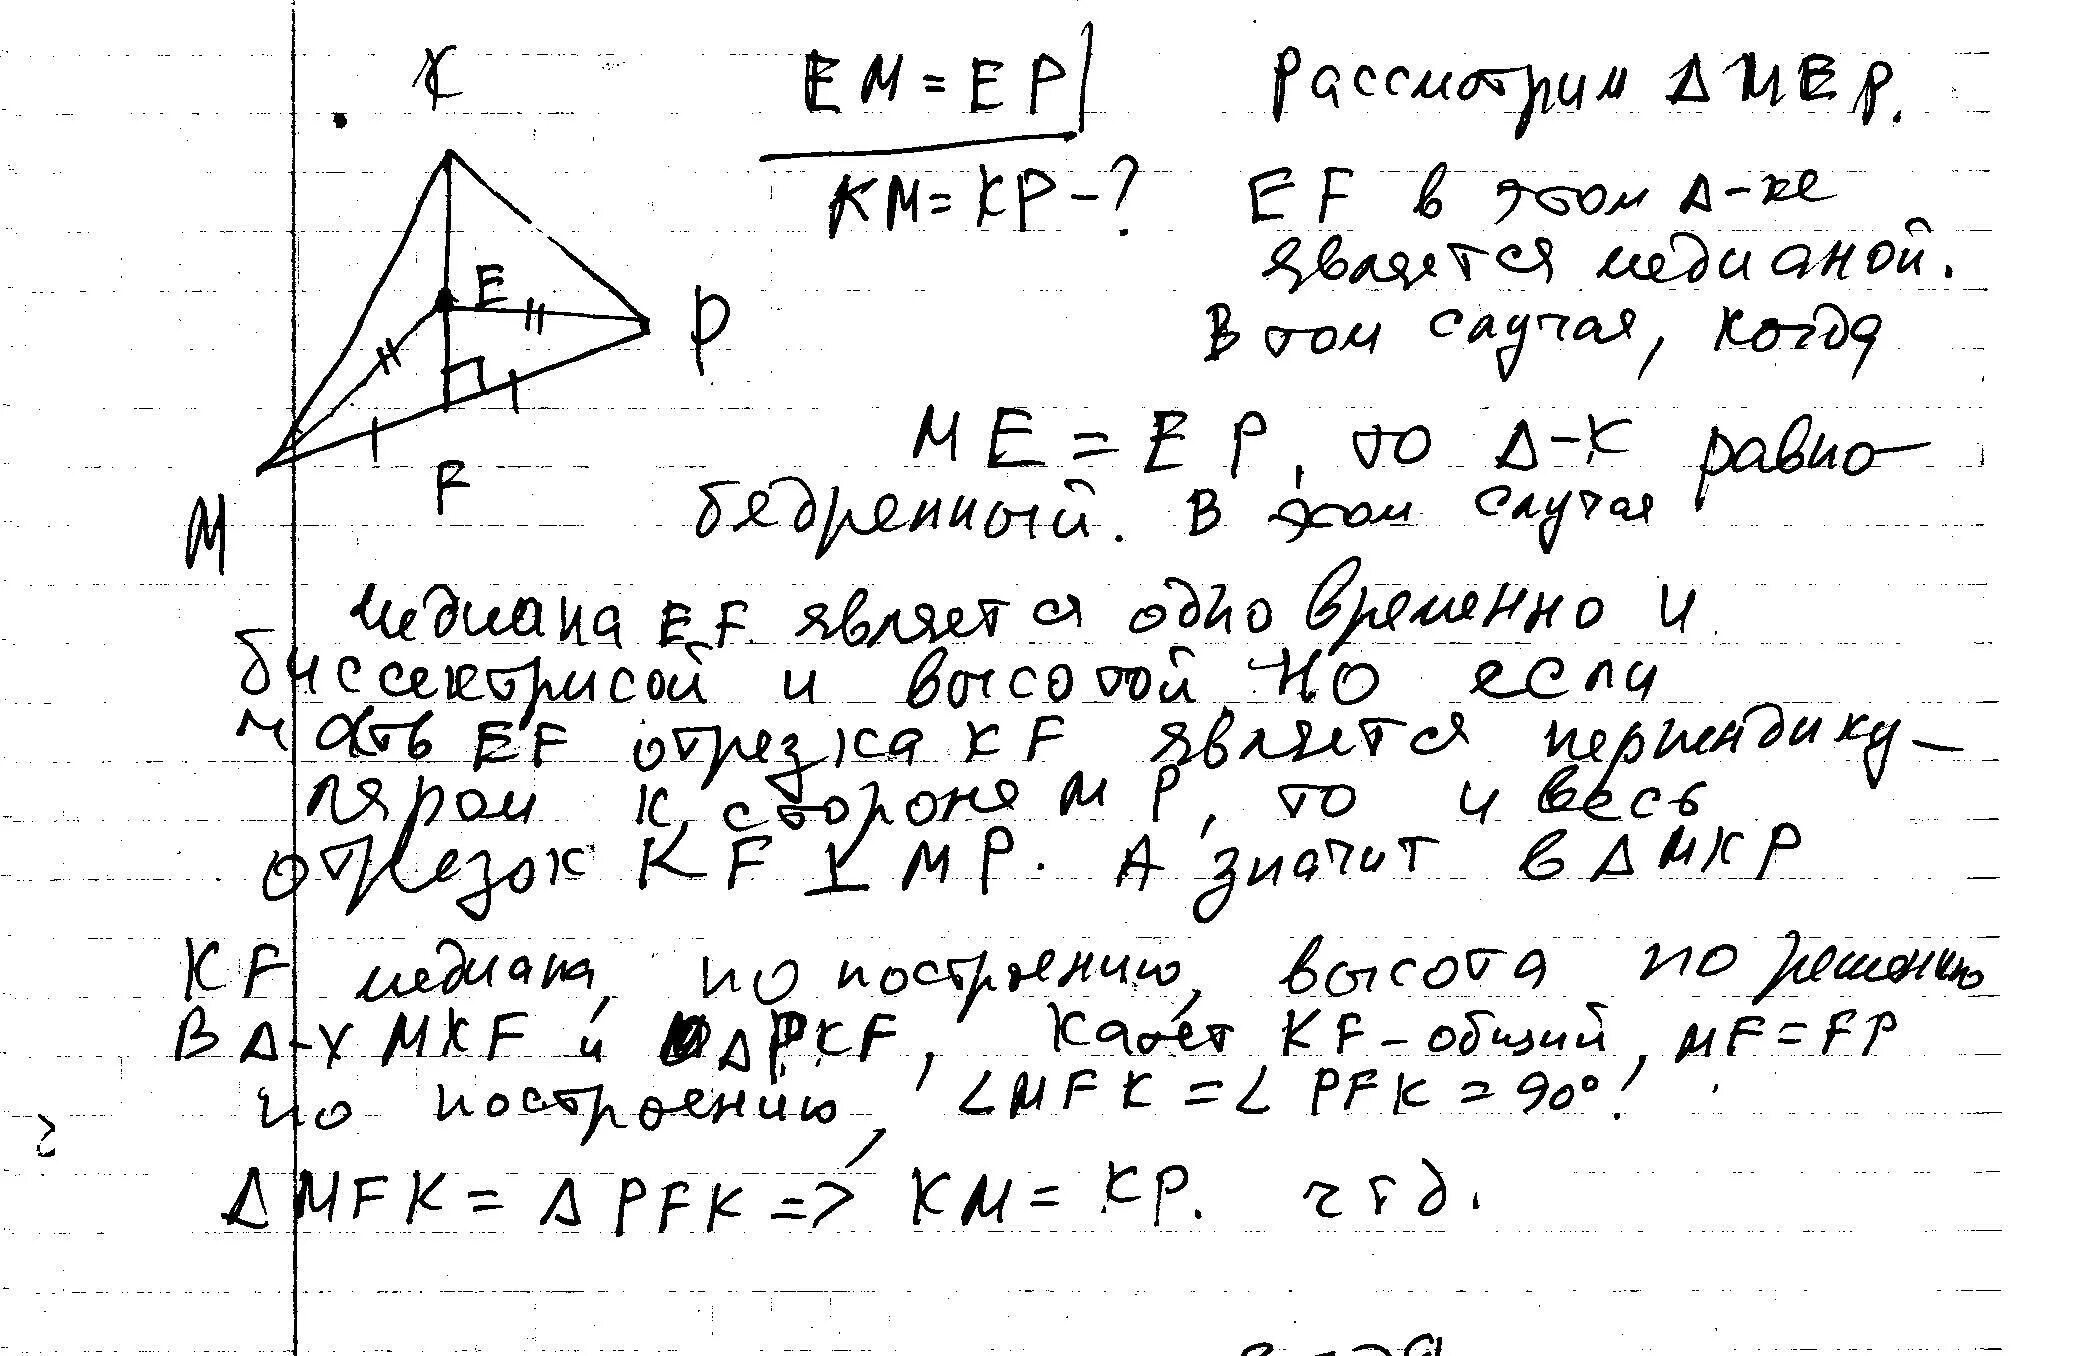 K
EM = EP
Рассмотрим Δ MEP.
KM = KP - ?
EF в этом Δ-ке
является медианой.
E
P
В том случая, когда
ME = EP, то Δ-к равно-
F
M
бедренный. В этом случая
медиана EF является одновременно и
биссектрисой и высотой. Но если
часть EF отрезка KF является перпендику-
ляром к стороне MP, то и весь
отрезок KF ⊥ MP. А значит в Δ MKP
KF медиана, по построению, высота по решению
В Δ-х MKF и Δ PKF, катет KF - общий, MF = FP
по построению, ∠MFK = ∠PFK = 90°!
Δ MFK = Δ PFK => KM = KP. чтд.